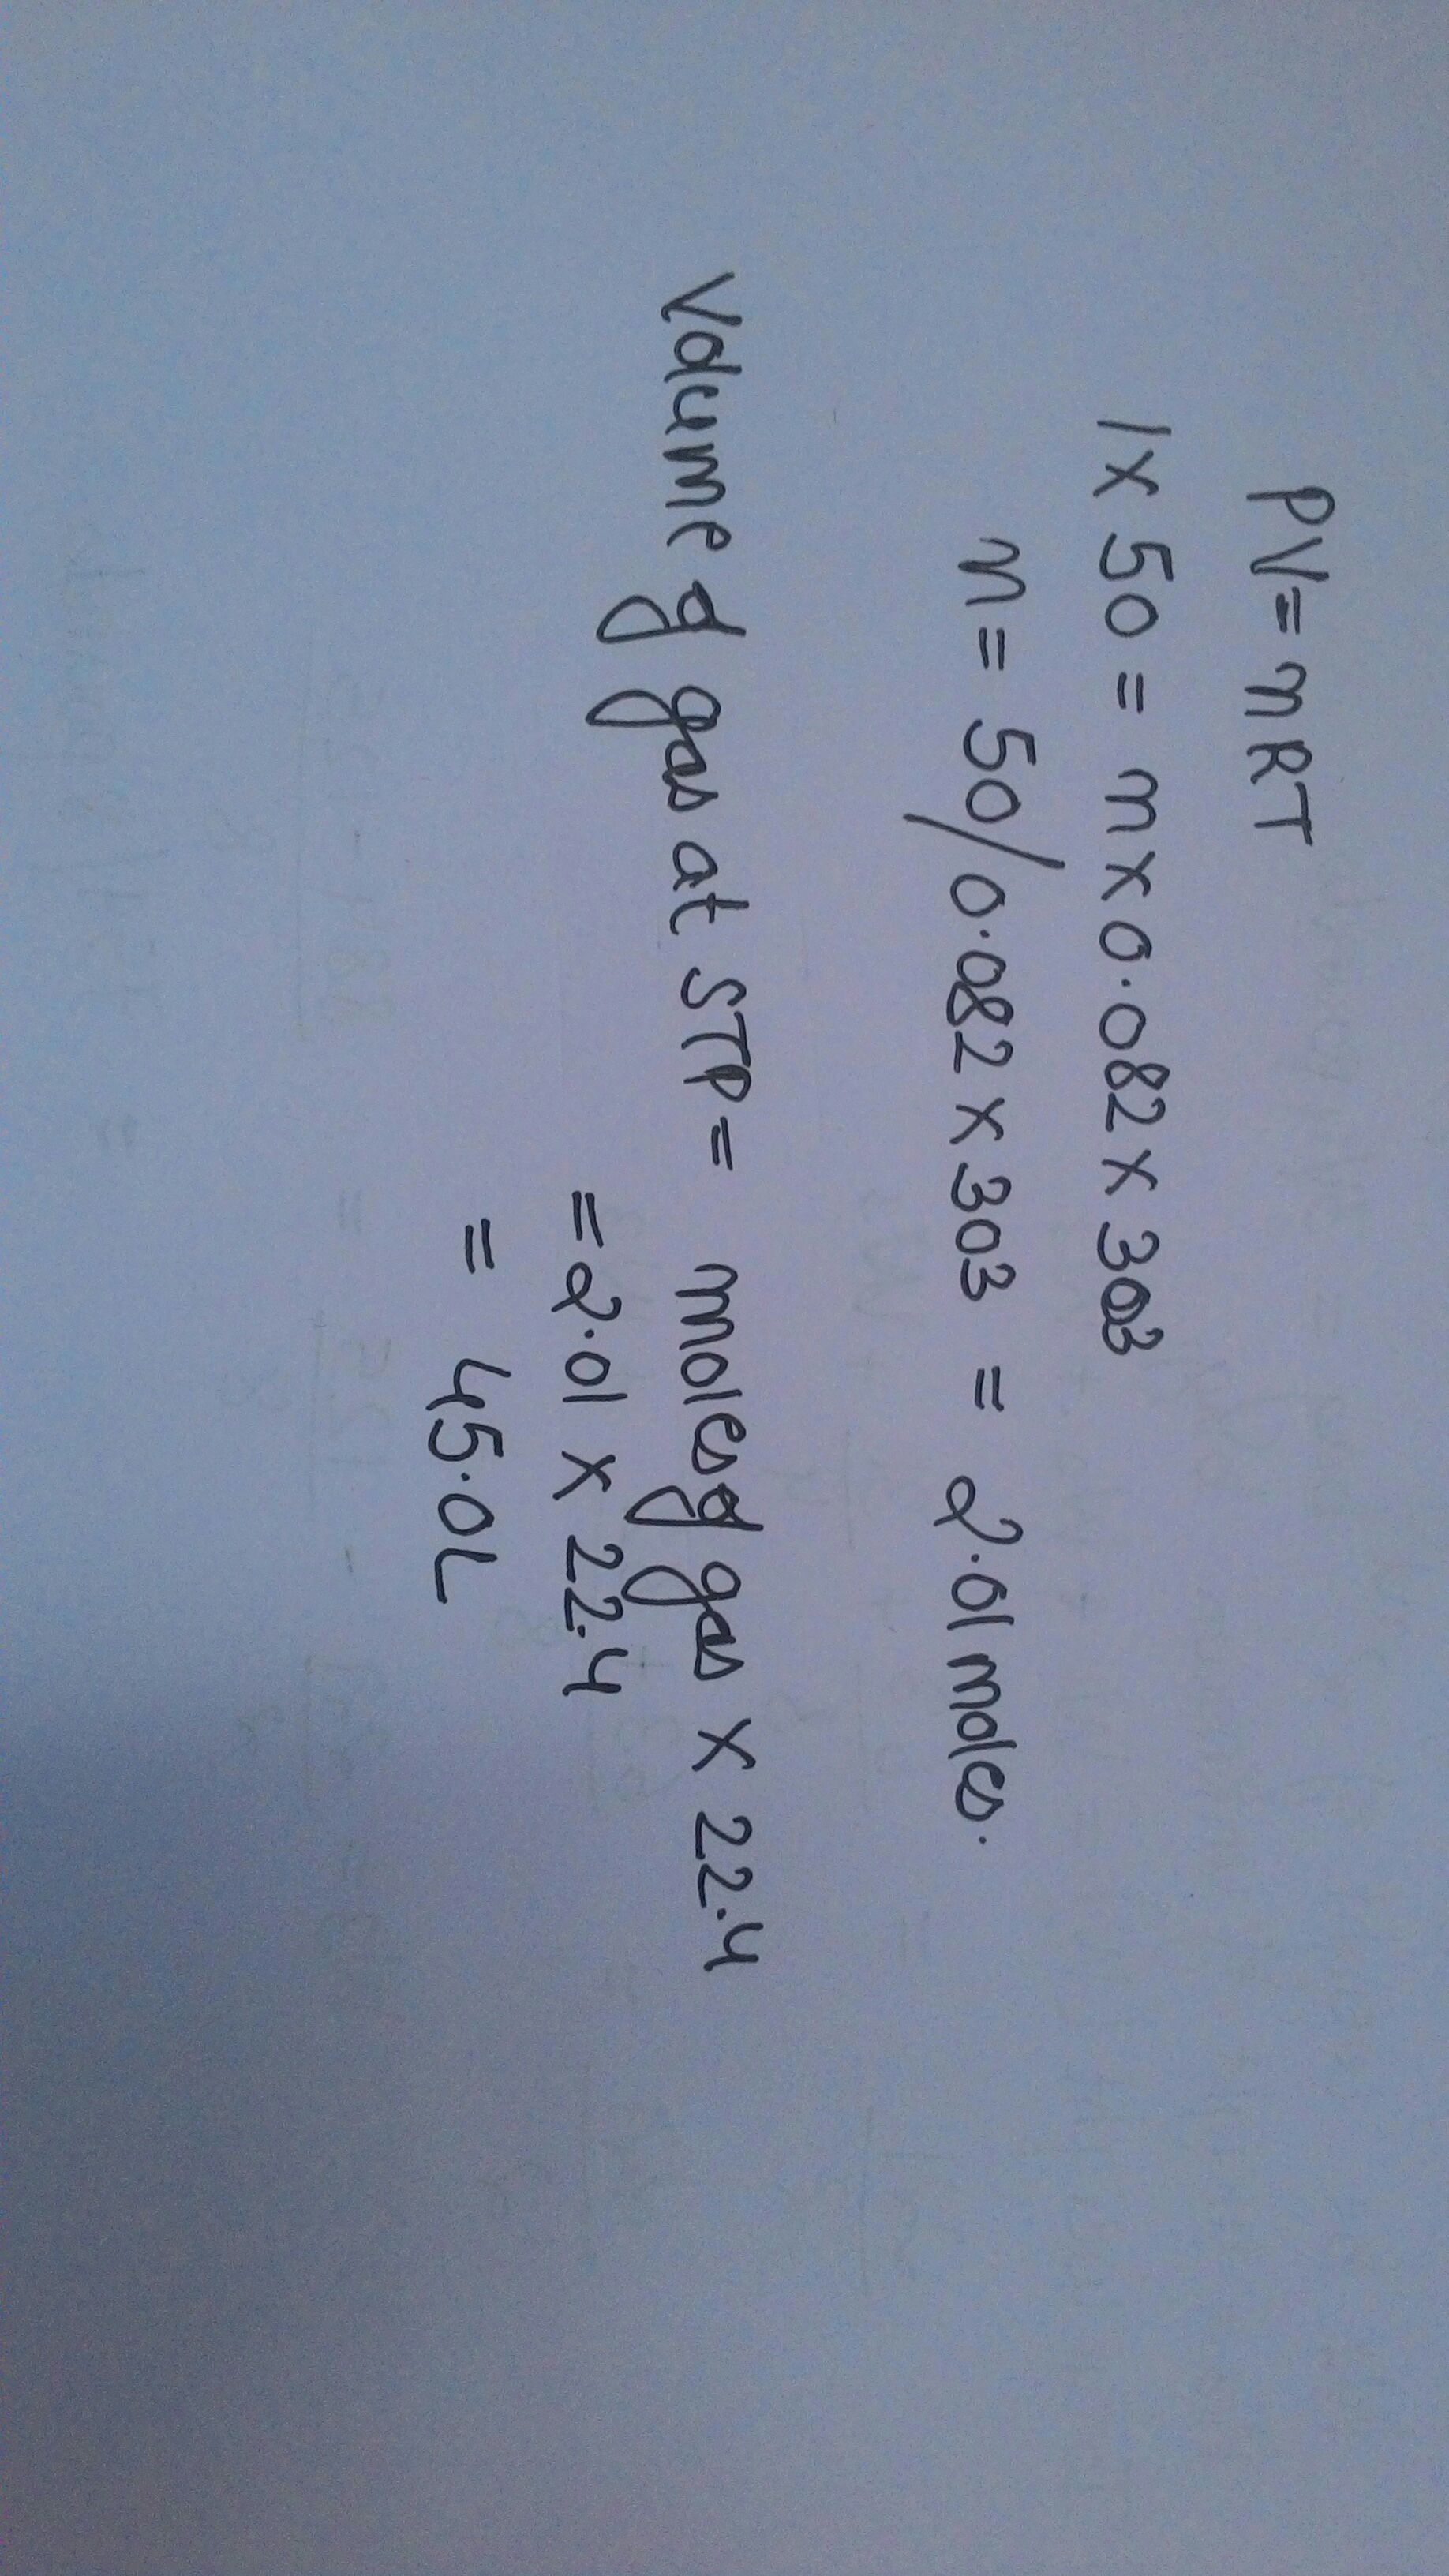 PV = nRT
1 x 50 = n x 0.082 x 303
n = 50/0.082 x 303 = 2.01 moles.
Volume of gas at STP = moles of gas x 22.4
= 2.01 x 22.4
= 45.0L